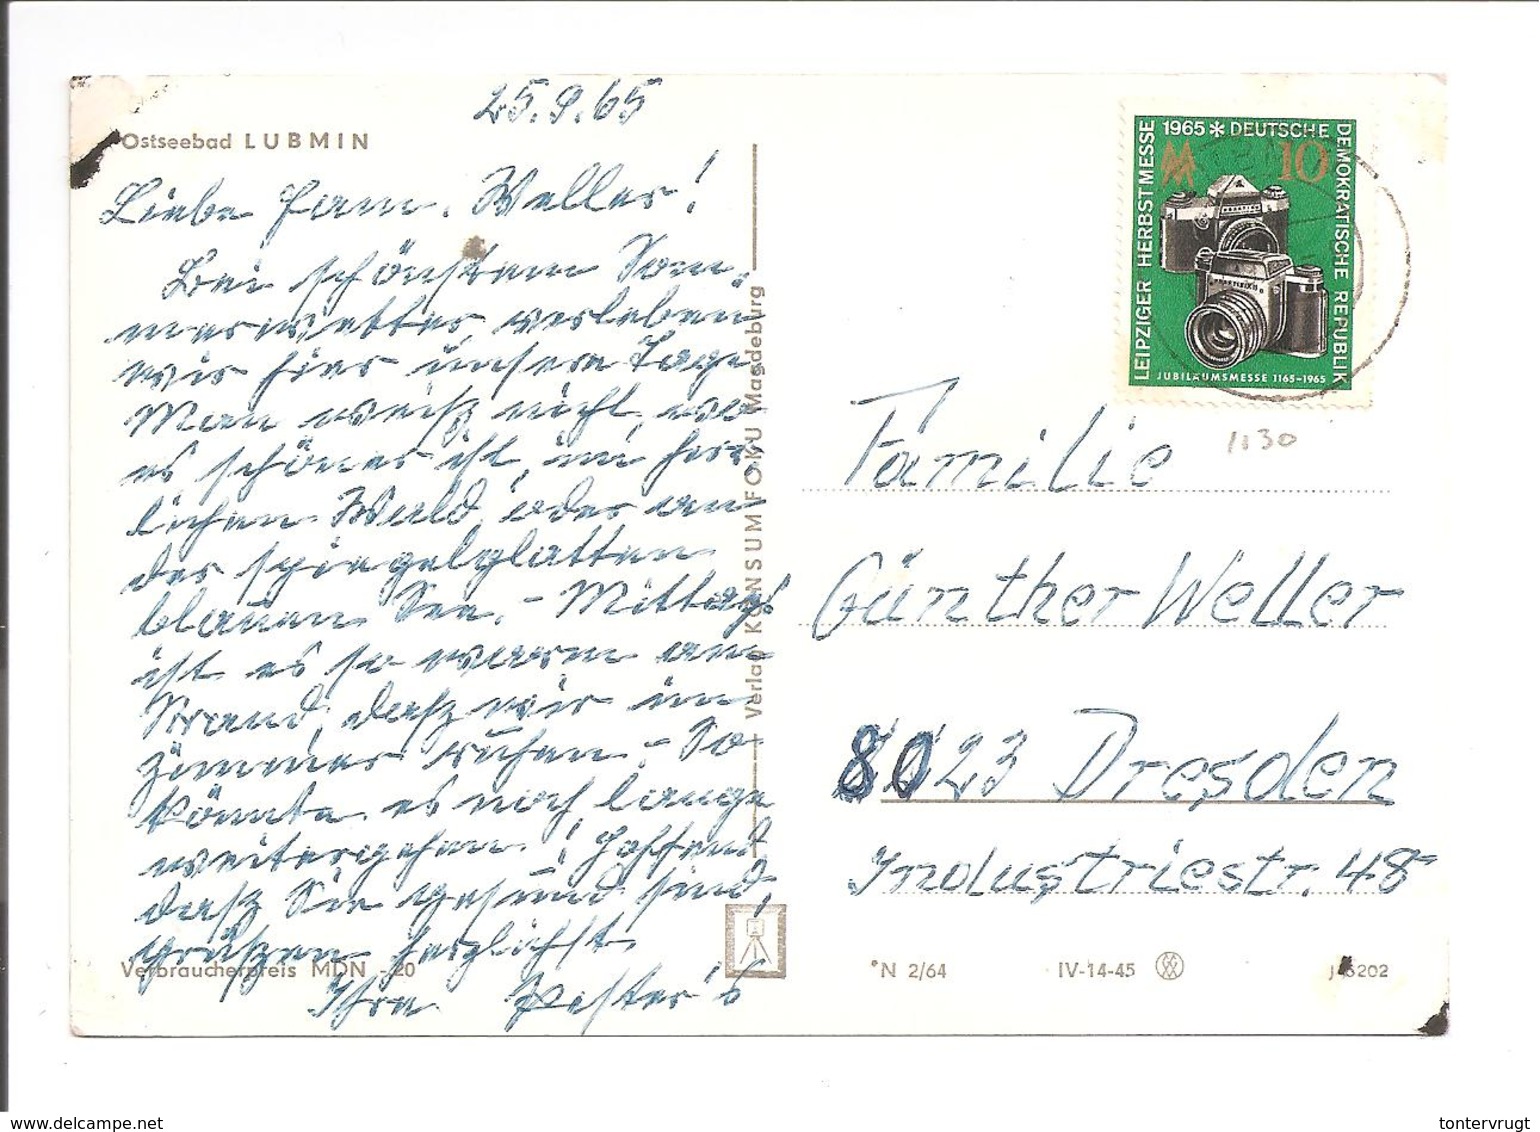 25.9.65
Ostseebad LUBMIN
Liebe Fam. Weller!
Bei schönstem Som-
merwetter verleben
wir hier unsere Tage.
Man weiß nicht, wo
es schöner ist, im herr-
lichen Wald oder an
der spiegelglatten
blauen See. – Mittags
ist es so warm am
Strand, daß wir im
Zimmer ruhen. – So
könnte es noch lange
weitergehen! Hoffend,
daß Sie gesund sind,
grüßen herzlichst
Ihre Pester's
Verbraucherpreis MDN -20
Verlag KONSUM FOKU Magdeburg
LEIPZIGER HERBSTMESSE 1965 * DEUTSCHE DEMOKRATISCHE REPUBLIK
10
JUBILÄUMSMESSE 1165-1965
1130
Familie
Günther Weller
8023 Dresden
Industriestr. 48
N 2/64 IV-14-45
delcampe.net
tontervrugt